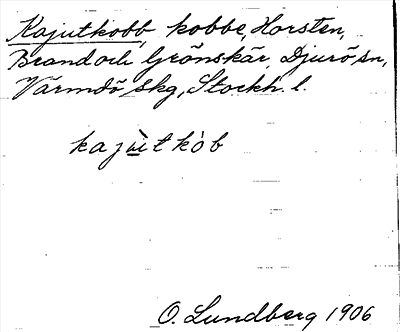 Kajutkobb, kobbe, Horsten,
Brand och Grönskär, Djurö sn,
Värmdö skg, Stockh. l.
kajùtkòb
O. Lundberg 1906